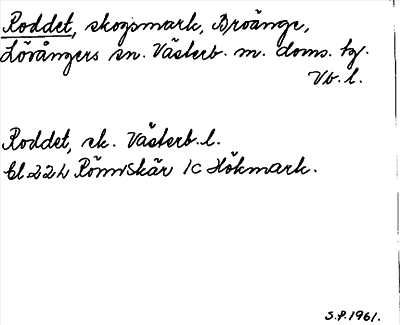 Roddet, skogsmark, Broänge,
Lövångers sn. Västerb. m. doms. tg.
Vb. l.
Roddet, sk. Västerb. l.
Bl. 22 L Rönnskär 1c Hökmark.
S.P. 1961.